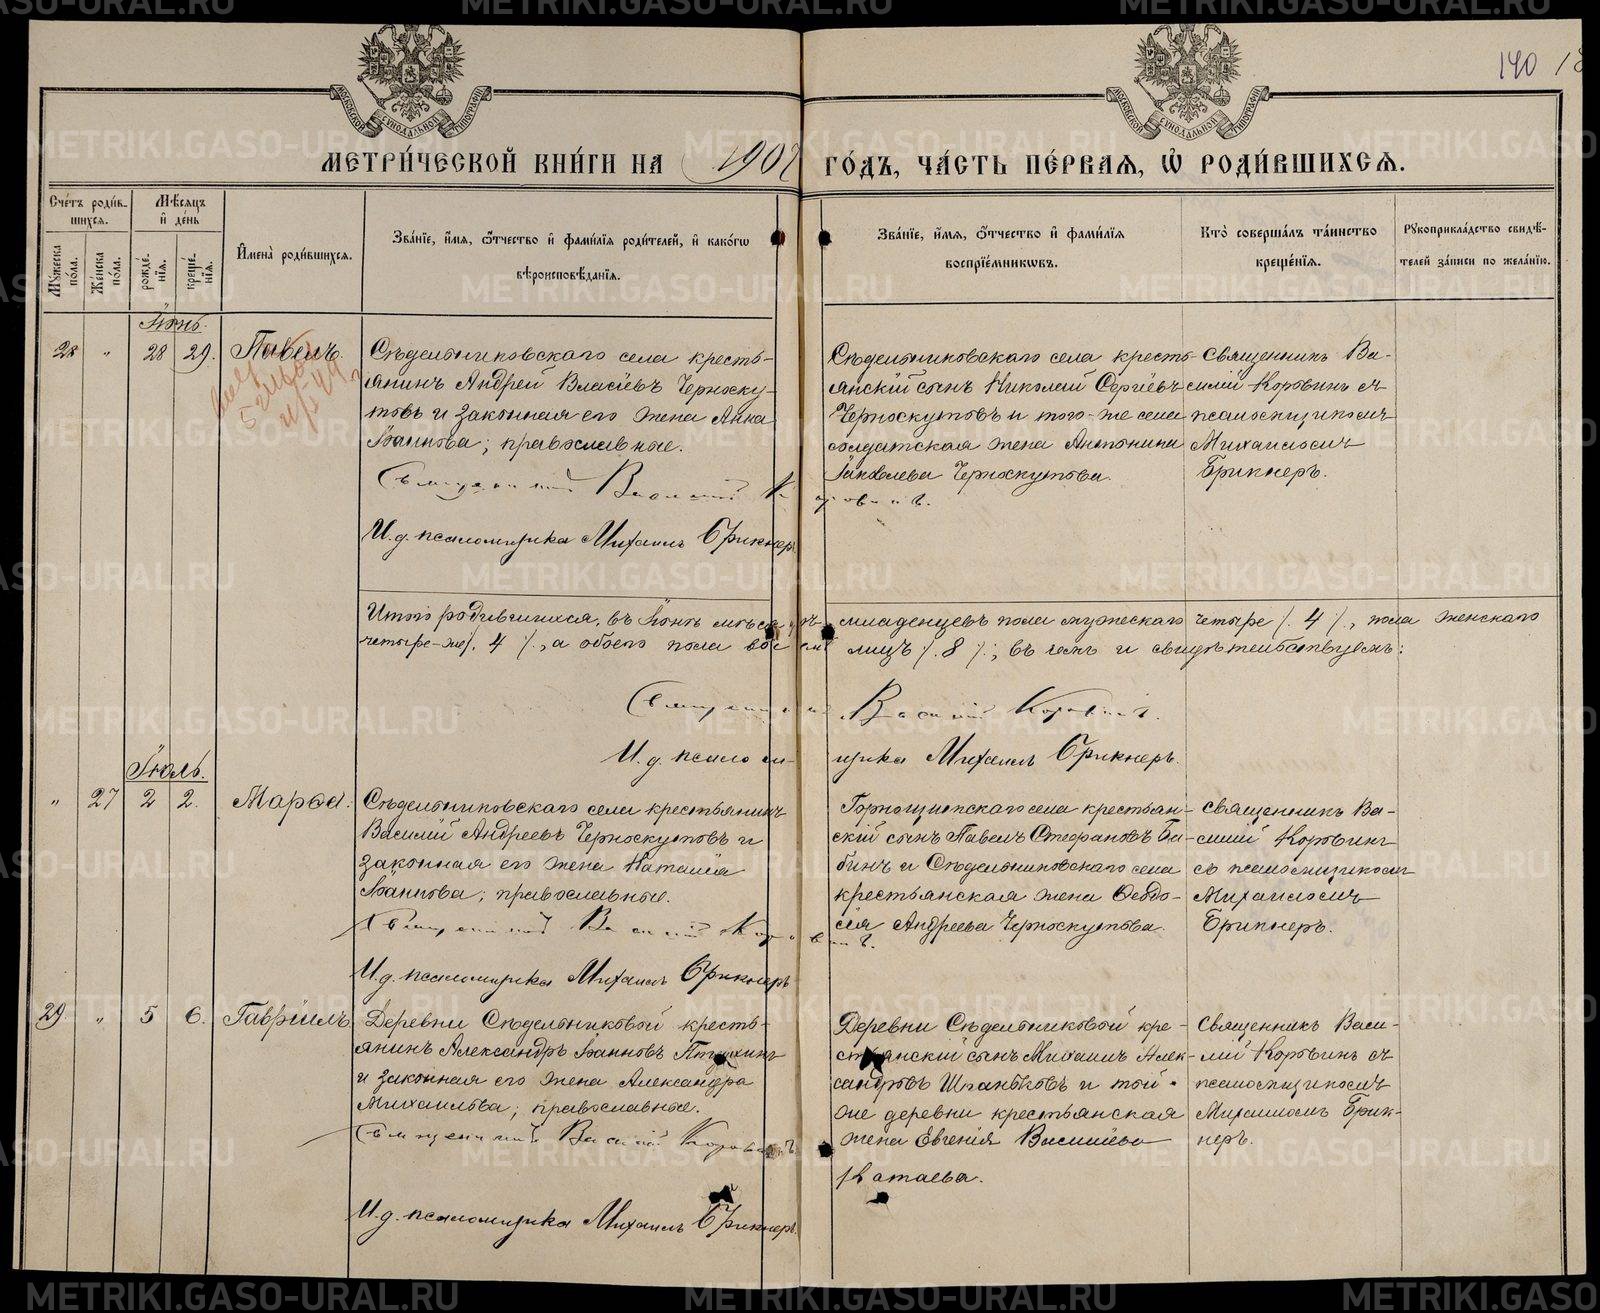 140
МОСКОВСКОЙ СѴНОДАЛЬНОЙ ТИПОГРАФІИ
МОСКОВСКОЙ СѴНОДАЛЬНОЙ ТИПОГРАФІИ
МЕТРИ́ЧЕСКОЙ КНИ́ГИ НА 1907 ГО́ДЪ, ЧА́СТЬ ПЕ́РВАЯ, Ѡ҆ РОДИ́ВШИХСЯ.
Сче́тъ роди́в-
шихся.
Мѣ́сяцъ
и҆ де́нь
Му́жеска
по́ла.
Же́нска
по́ла.
рожде́-
нїя.
креще́-
нїя.
И҆мена̀ роди́вшихся.
Зва́нїе, и҆́мя, ѻ҆́тчество и҆ фами́лїя роди́телей, и҆ како́гѡ
вѣроисповѣ́данїя.
Зва́нїе, и҆́мя, ѻ҆́тчество и҆ фами́лїя
воспрїе́мниковъ.
Кто̀ соверша́лъ та́инство
креще́нїя.
Рукоприкла́дство свидѣ́-
телей за́писи по жела́нїю.
Іюнь.
28 " 28 29. Павелъ.
Сѣдельниковскаго села кресть-
янинъ Андрей Власіевъ Черноску-
товъ и законная его жена Анна
Іоаннова; православные.
Священникъ Василій Коровинъ.
И. д. псаломщика Михаилъ Брикнеръ
Сѣдельниковскаго села кресть-
янскій сынъ Николай Сергіевъ
Черноскутовъ и того-же села
солдатская жена Антонина
Іаковлева Черноскутова.
Священникъ Ва-
силій Коровинъ съ
псаломщикомъ
Михаиломъ
Брикнеръ.
Итого родившихся въ Іюнь мѣсяцѣ младенцевъ пола мужескаго четыре /. 4 /., пола женскаго
четыре-же /. 4 /., а обоего пола восемь лицъ /. 8 /.; въ чемъ и свидѣтельствуемъ:
Священникъ Василій Коровинъ.
И. д. псаломщика Михаилъ Брикнеръ.
Іюль.
" 27 2 2. Марѳа.
Сѣдельниковскаго села крестьянинъ
Василій Андреевъ Черноскутовъ и
законная его жена Наталія
Іоаннова; православные.
Священникъ Василій Коровинъ.
И. д. псаломщика Михаилъ Брикнеръ
Горнощитскаго села крестьян-
скій сынъ Павелъ Стефановъ Ба-
бинъ и Сѣдельниковскаго села
крестьянская жена Ѳеодо-
сія Андреева Черноскутова.
Священникъ Ва-
силій Коровинъ
съ псаломщикомъ
Михаиломъ
Брикнеръ.
29 " 5 6. Гавріилъ.
Деревни Сѣдельниковой кресть-
янинъ Александръ Іоанновъ Птухинъ
и законная его жена Александра
Михаилова; православные.
Священникъ Василій Коровинъ
И. д. псаломщика Михаилъ Брикнеръ.
Деревни Сѣдельниковой кре-
стьянскій сынъ Михаилъ Алек-
сандровъ и той-
же деревни крестьянская
жена Евгенія Василіева
Священникъ Васи-
лій Коровинъ съ
псаломщикомъ
Михаиломъ Брик-
неръ.
METRIKI.GASO-URAL.RU